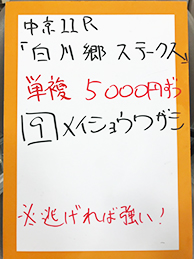 中京11R
「白川郷ステークス」
単複 5000円ずつ
9 メイショウワザシ
※逃げれば強い!